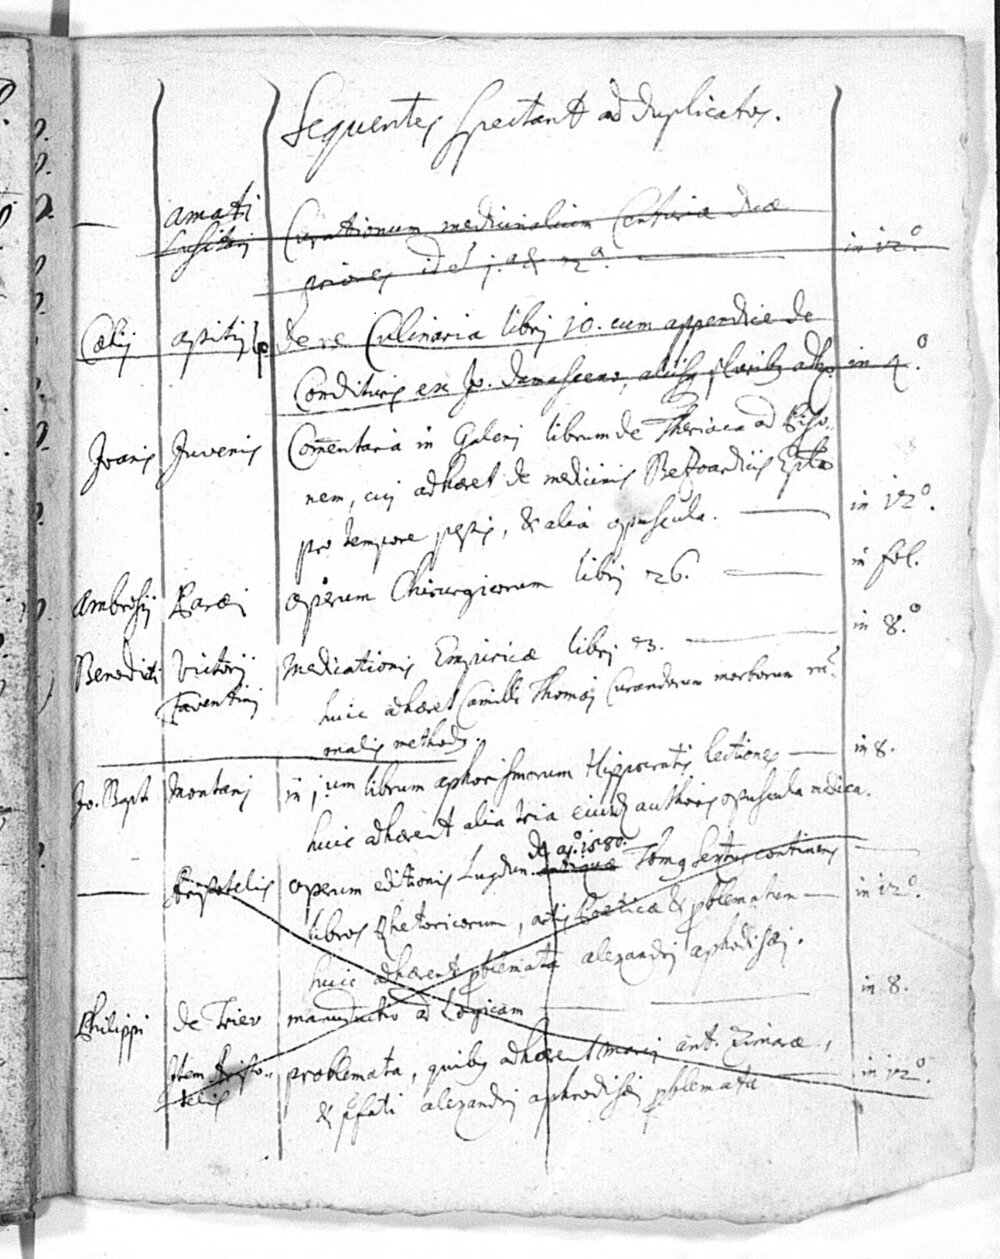 Sequentes spectant ad duplicatos.
Amati
Lusitani Curationum medicinalium Centuriæ duæ
priores id est 1.ª & 2.ª. in 12.º
Cælij Apitij de re Culinaria libri 10. cum appendice de
Condituris ex Jo. Damasceno, in 4.º
Joanis Juvenis Com̄entaria in Galeni librum de Theriaca ad Piso-
nem, cui adhæret de medicinis Bezoardicis
pro tempore pestis, & alia opuscula. in 12.º
Ambrosij Paræi operum Chirurgicorum libri 26. in fol.
Benedicti Victorij Medicationis Empiricæ libri 3. in 8.º
Faventini huic adhæret Camilli Thomaij Curandorum morborum
methodus.
Jo. Bapt Montani in jum librum aphorismorum Hippocratis lectiones in 8.
huic adhærent alia tria eiusd authoris opuscula medica.
de aº. 1580.
Aristotelis operum editionis Lugdun. antiquæ Tomus sextus continens
libros Rhetoricorum, artis Poeticæ & problematum in 12º.
huic adhærent problemata alexandri aphrodisæi.
Philippi de Triev manuductio ad Logicam in 8.
Item Aristo-
telis problemata, quibus adhære Marci ant. Zimaræ,
& alexandri aphrodisæi problemata in 12º.